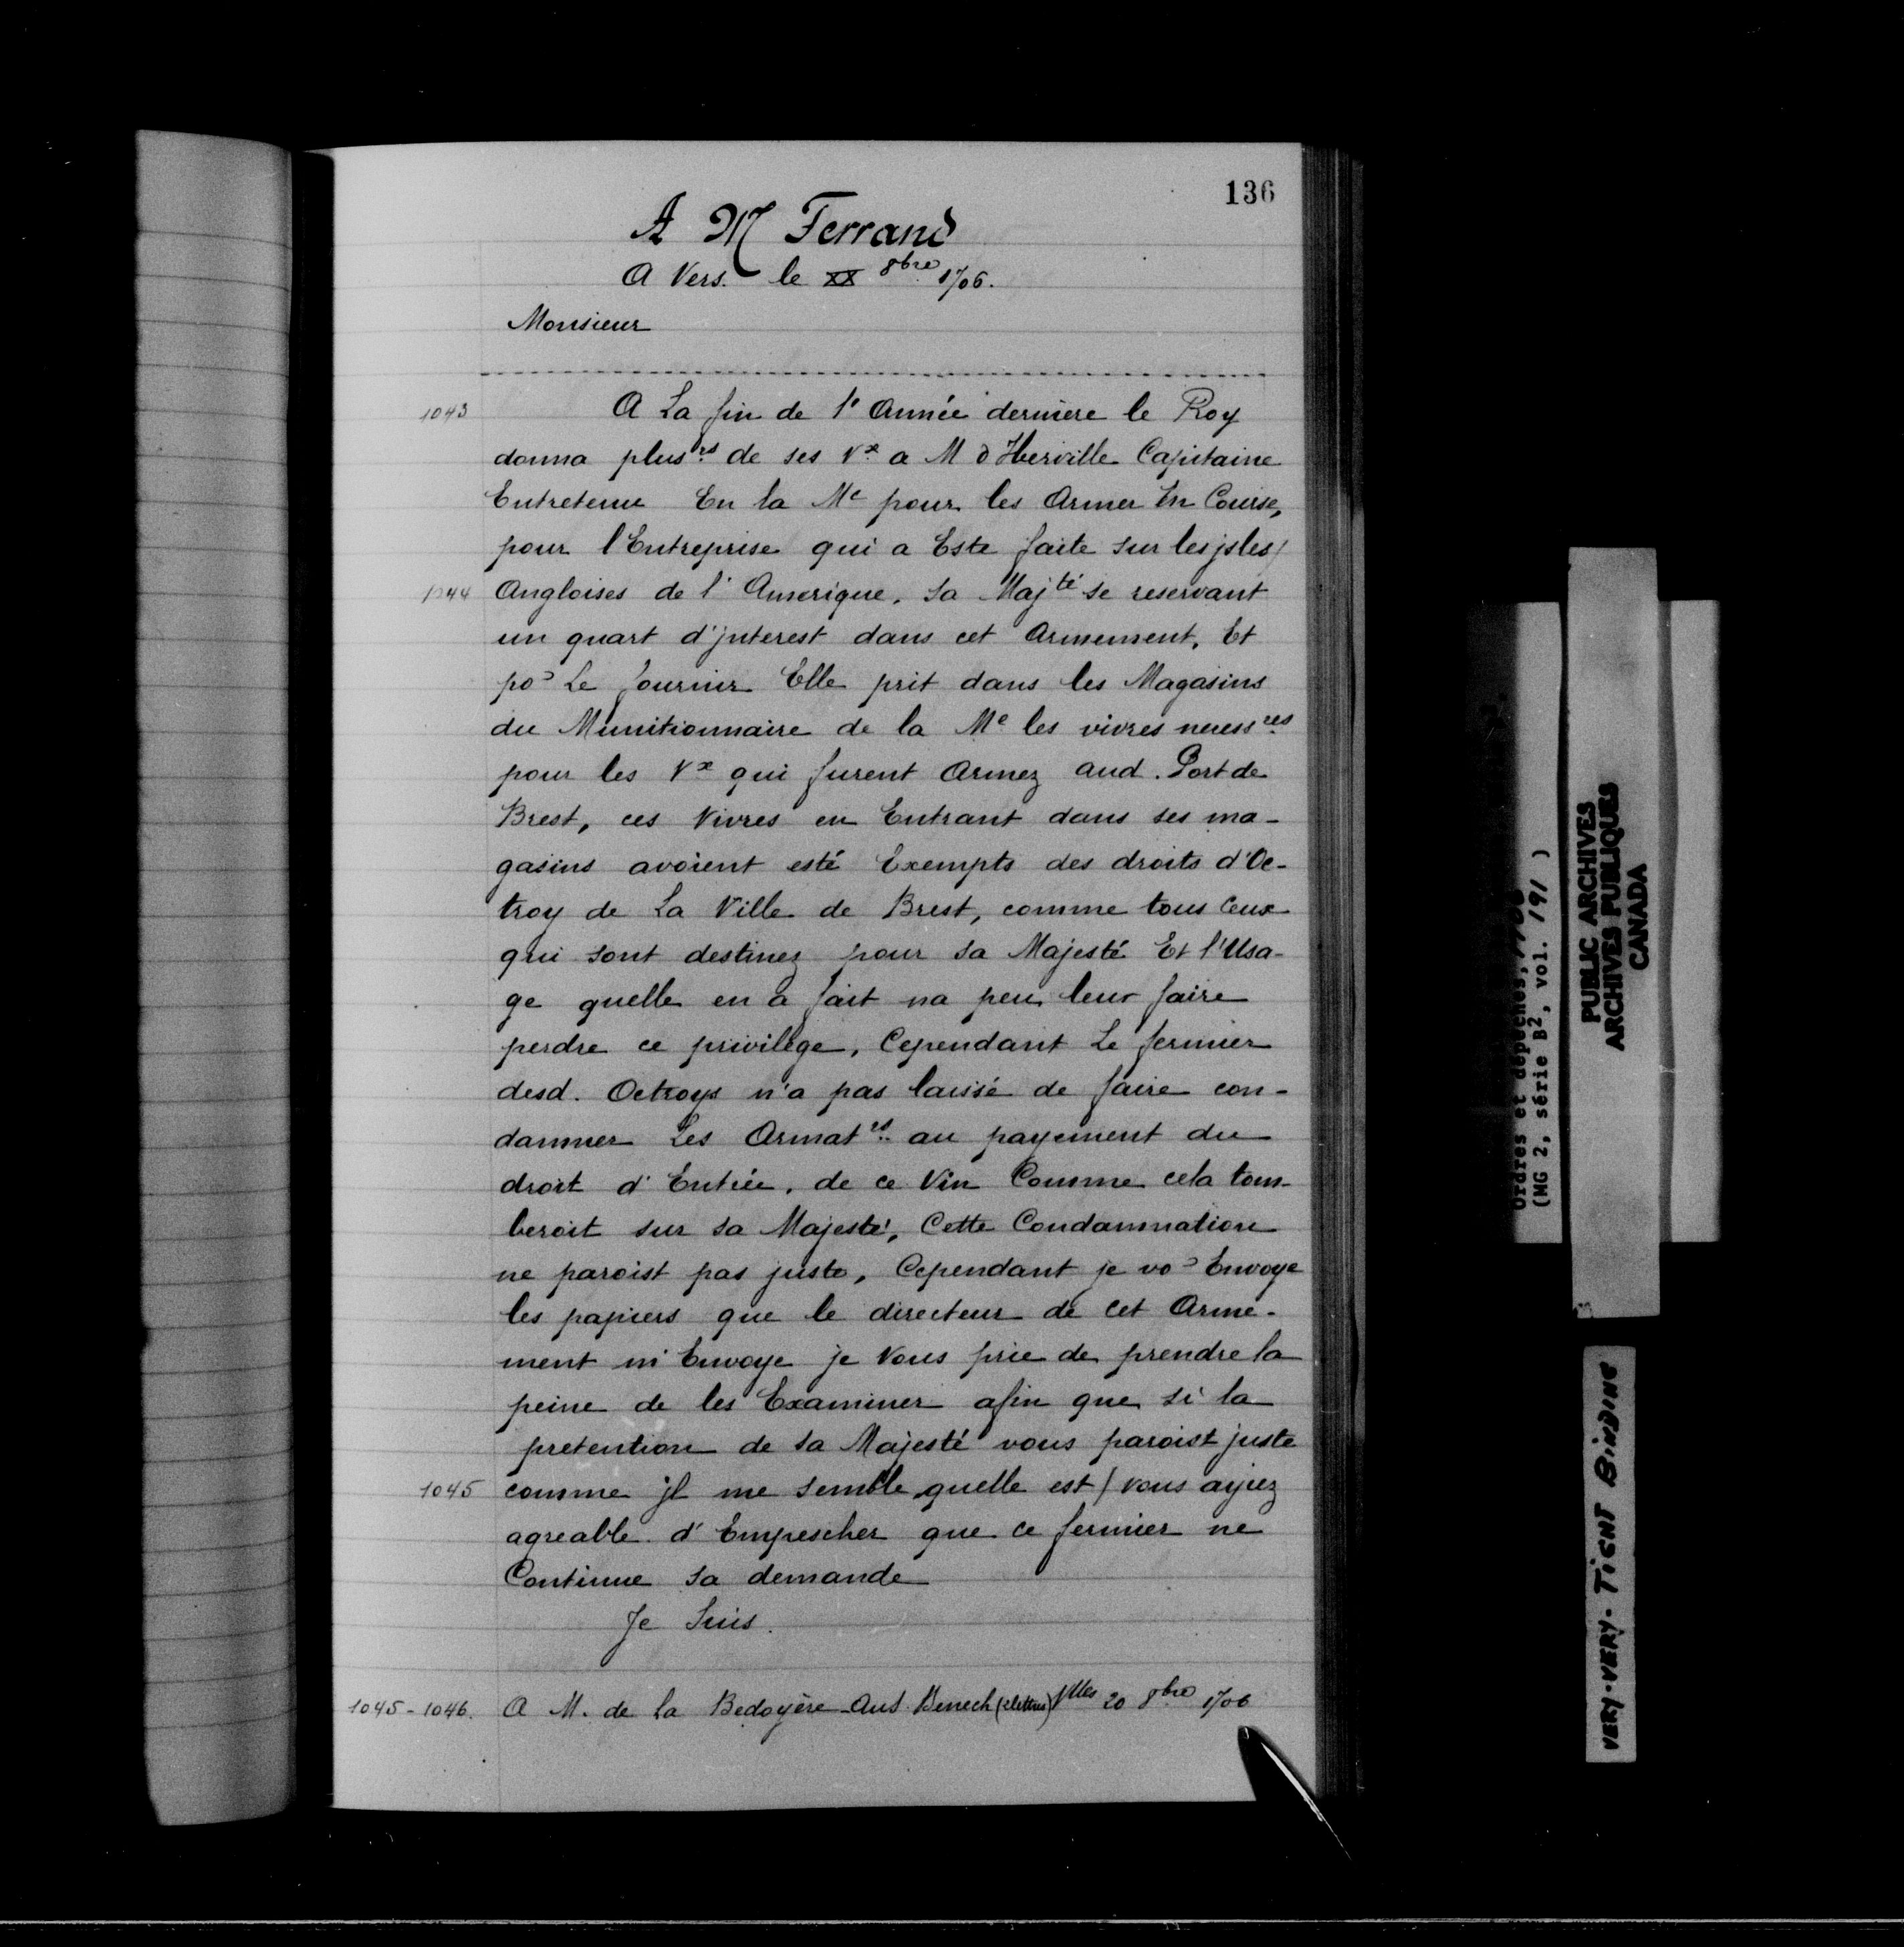 136
A M Ferrand
A Vers. le XX 8bre 1706.
Monsieur
1043 A La fin de l'Année derniere le Roy
donna plusrs de ses Vx a M d'Iberville Capitaine
Entretenu En la Me pour les Armer En Course,
pour l'Entreprise qui a Este faite sur les jsles/
1044 Angloises de l'Amerique, Sa Majté se reservant
un quart d'jnterest dans cet Armement, Et
po⁹ Le fournir Elle prit dans les Magasins
du Munitionnaire de la Me les vivres necessres
pour les Vx qui furent Armez aud. Port de
Brest, ces Vivres en Entrant dans ses ma-
gasins avoient esté Exempts des droits d'Oc-
troy de La Ville de Brest, comme tous Ceux
qui sont destinez pour Sa Majesté Et l'Usa-
ge quelle en a fait na peu leur faire
perdre ce privilege, Cependant Le fermier
desd. Octroys n'a pas laissé de faire con-
damner Les Armatrs au payement du
droit d'Entrée, de ce Vin Comme cela tom-
beroit sur Sa Majesté, Cette Condamnation
ne paroist pas juste, Cependant je vo⁹ Envoye
les papiers que le directeur de cet Arme-
ment m'Envoye je Vous prie de prendre la
peine de les Examiner afin que si la
pretention de Sa Majesté vous paroist juste
1045 comme jl me semble quelle est/ vous ayiez
agreable d'Empescher que ce fermier ne
Continue Sa demande
Je Suis.
1045-1046. A M. de La Bedoyère Aus. Benech (2 lettres) Vlles 20 8bre 1706
Ordres et dépêches, 1706
(MG 2, série B2, vol. 191 )
PUBLIC ARCHIVES
ARCHIVES PUBLIQUES
CANADA
VERY-VERY-TIGHT BINDING